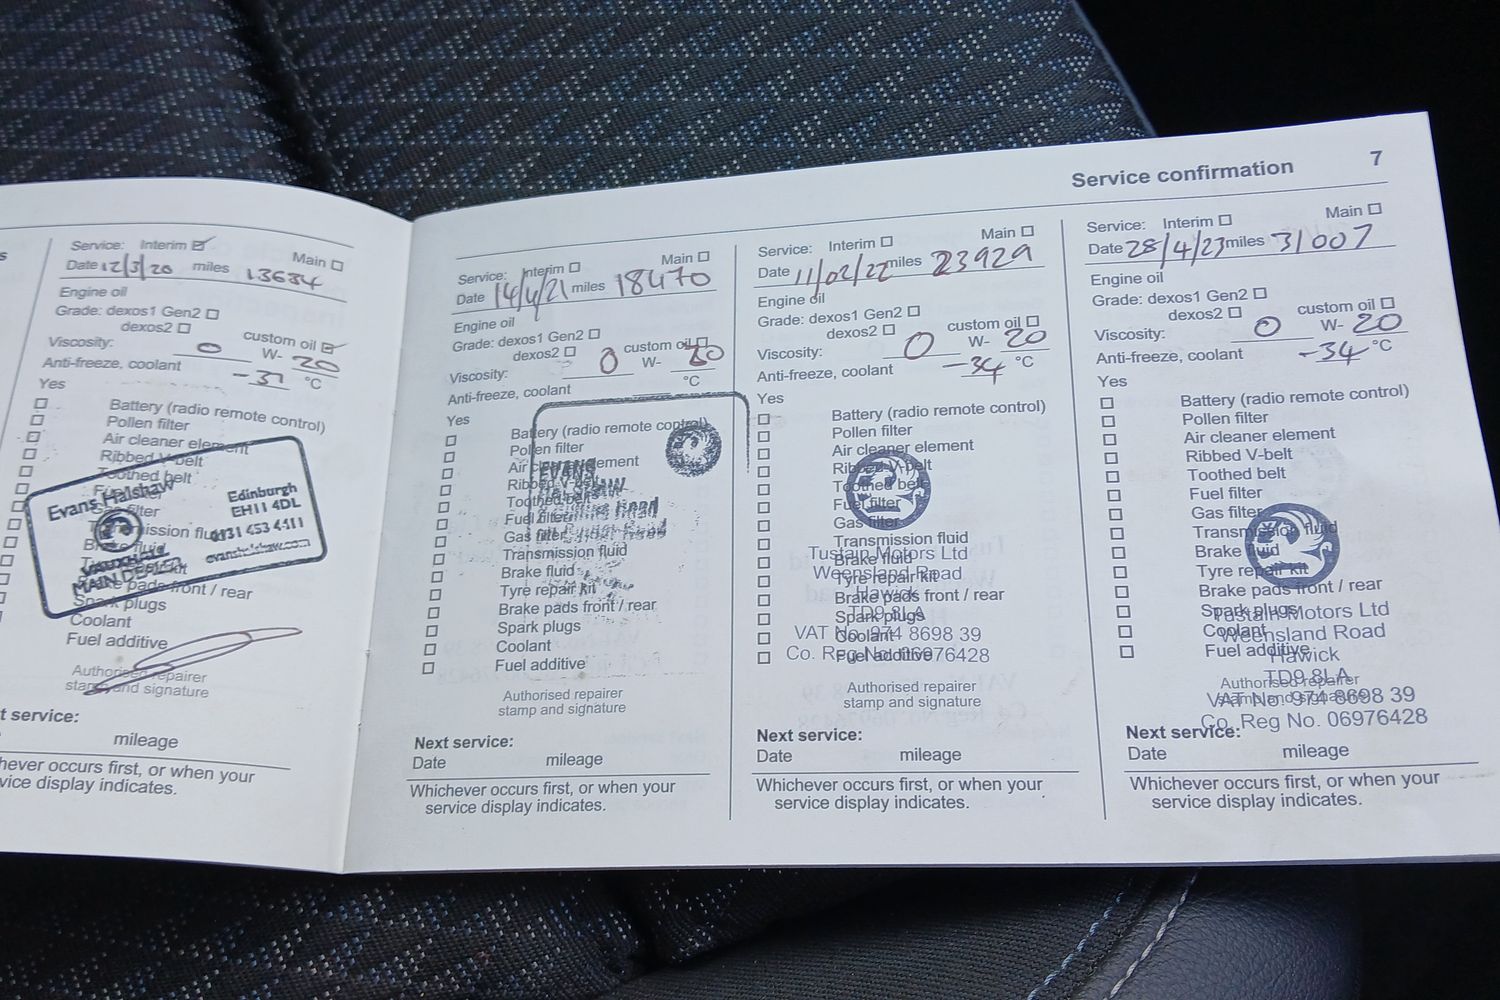 Service confirmation 7
s
Service: Interim Main
Date 12/3/20 miles 13634
Engine oil
Grade: dexos1 Gen2
dexos2 custom oil
Viscosity: 0 W- 20
Anti-freeze, coolant -37 °C
Yes
Battery (radio remote control)
Pollen filter
Air cleaner element
Ribbed V-belt
Toothed belt
Fuel filter
Gas filter
Transmission fluid
Brake fluid
Tyre repair kit
Brake pads front / rear
Spark plugs
Coolant
Fuel additive
Evans Halshaw
VAUXHALL
MAIN DEALER
Edinburgh
EH11 4DL
0131 453 4411
evanshalshaw.com
Authorised repairer
stamp and signature
t service:
mileage
hever occurs first, or when your
vice display indicates.
Service: Interim Main
Date 14/4/21 miles 18470
Engine oil
Grade: dexos1 Gen2
dexos2 custom oil
Viscosity: 0 W-
Anti-freeze, coolant °C
Yes
Battery (radio remote control)
Pollen filter
Air cleaner element
Ribbed V-belt
Toothed belt
Fuel filter
Gas filter
Transmission fluid
Brake fluid
Tyre repair kit
Brake pads front / rear
Spark plugs
Coolant
Fuel additive
EVANS
Halshaw
Road
Authorised repairer
stamp and signature
Next service:
Date mileage
Whichever occurs first, or when your
service display indicates.
Service: Interim Main
Date 11/02/22 miles 23929
Engine oil
Grade: dexos1 Gen2
dexos2 custom oil
Viscosity: 0 W- 20
Anti-freeze, coolant -34 °C
Yes
Battery (radio remote control)
Pollen filter
Air cleaner element
Ribbed V-belt
Toothed belt
Fuel filter
Gas filter
Transmission fluid
Brake fluid
Tyre repair kit
Brake pads front / rear
Spark plugs
Coolant
Fuel additive
Tustain Motors Ltd
Weensland Road
Hawick
TD9 8LA
VAT No. 974 8698 39
Co. Reg No. 06976428
Authorised repairer
stamp and signature
Next service:
Date mileage
Whichever occurs first, or when your
service display indicates.
Service: Interim Main
Date 28/4/23 miles 31007
Engine oil
Grade: dexos1 Gen2
dexos2 custom oil
Viscosity: 0 W- 20
Anti-freeze, coolant -34 °C
Yes
Battery (radio remote control)
Pollen filter
Air cleaner element
Ribbed V-belt
Toothed belt
Fuel filter
Gas filter
Transmission fluid
Brake fluid
Tyre repair kit
Brake pads front / rear
Spark plugs
Coolant
Fuel additive
Tustain Motors Ltd
Weensland Road
Hawick
TD9 8LA
VAT No. 974 8698 39
Co. Reg No. 06976428
Authorised repairer
stamp and signature
Next service:
Date mileage
Whichever occurs first, or when your
service display indicates.